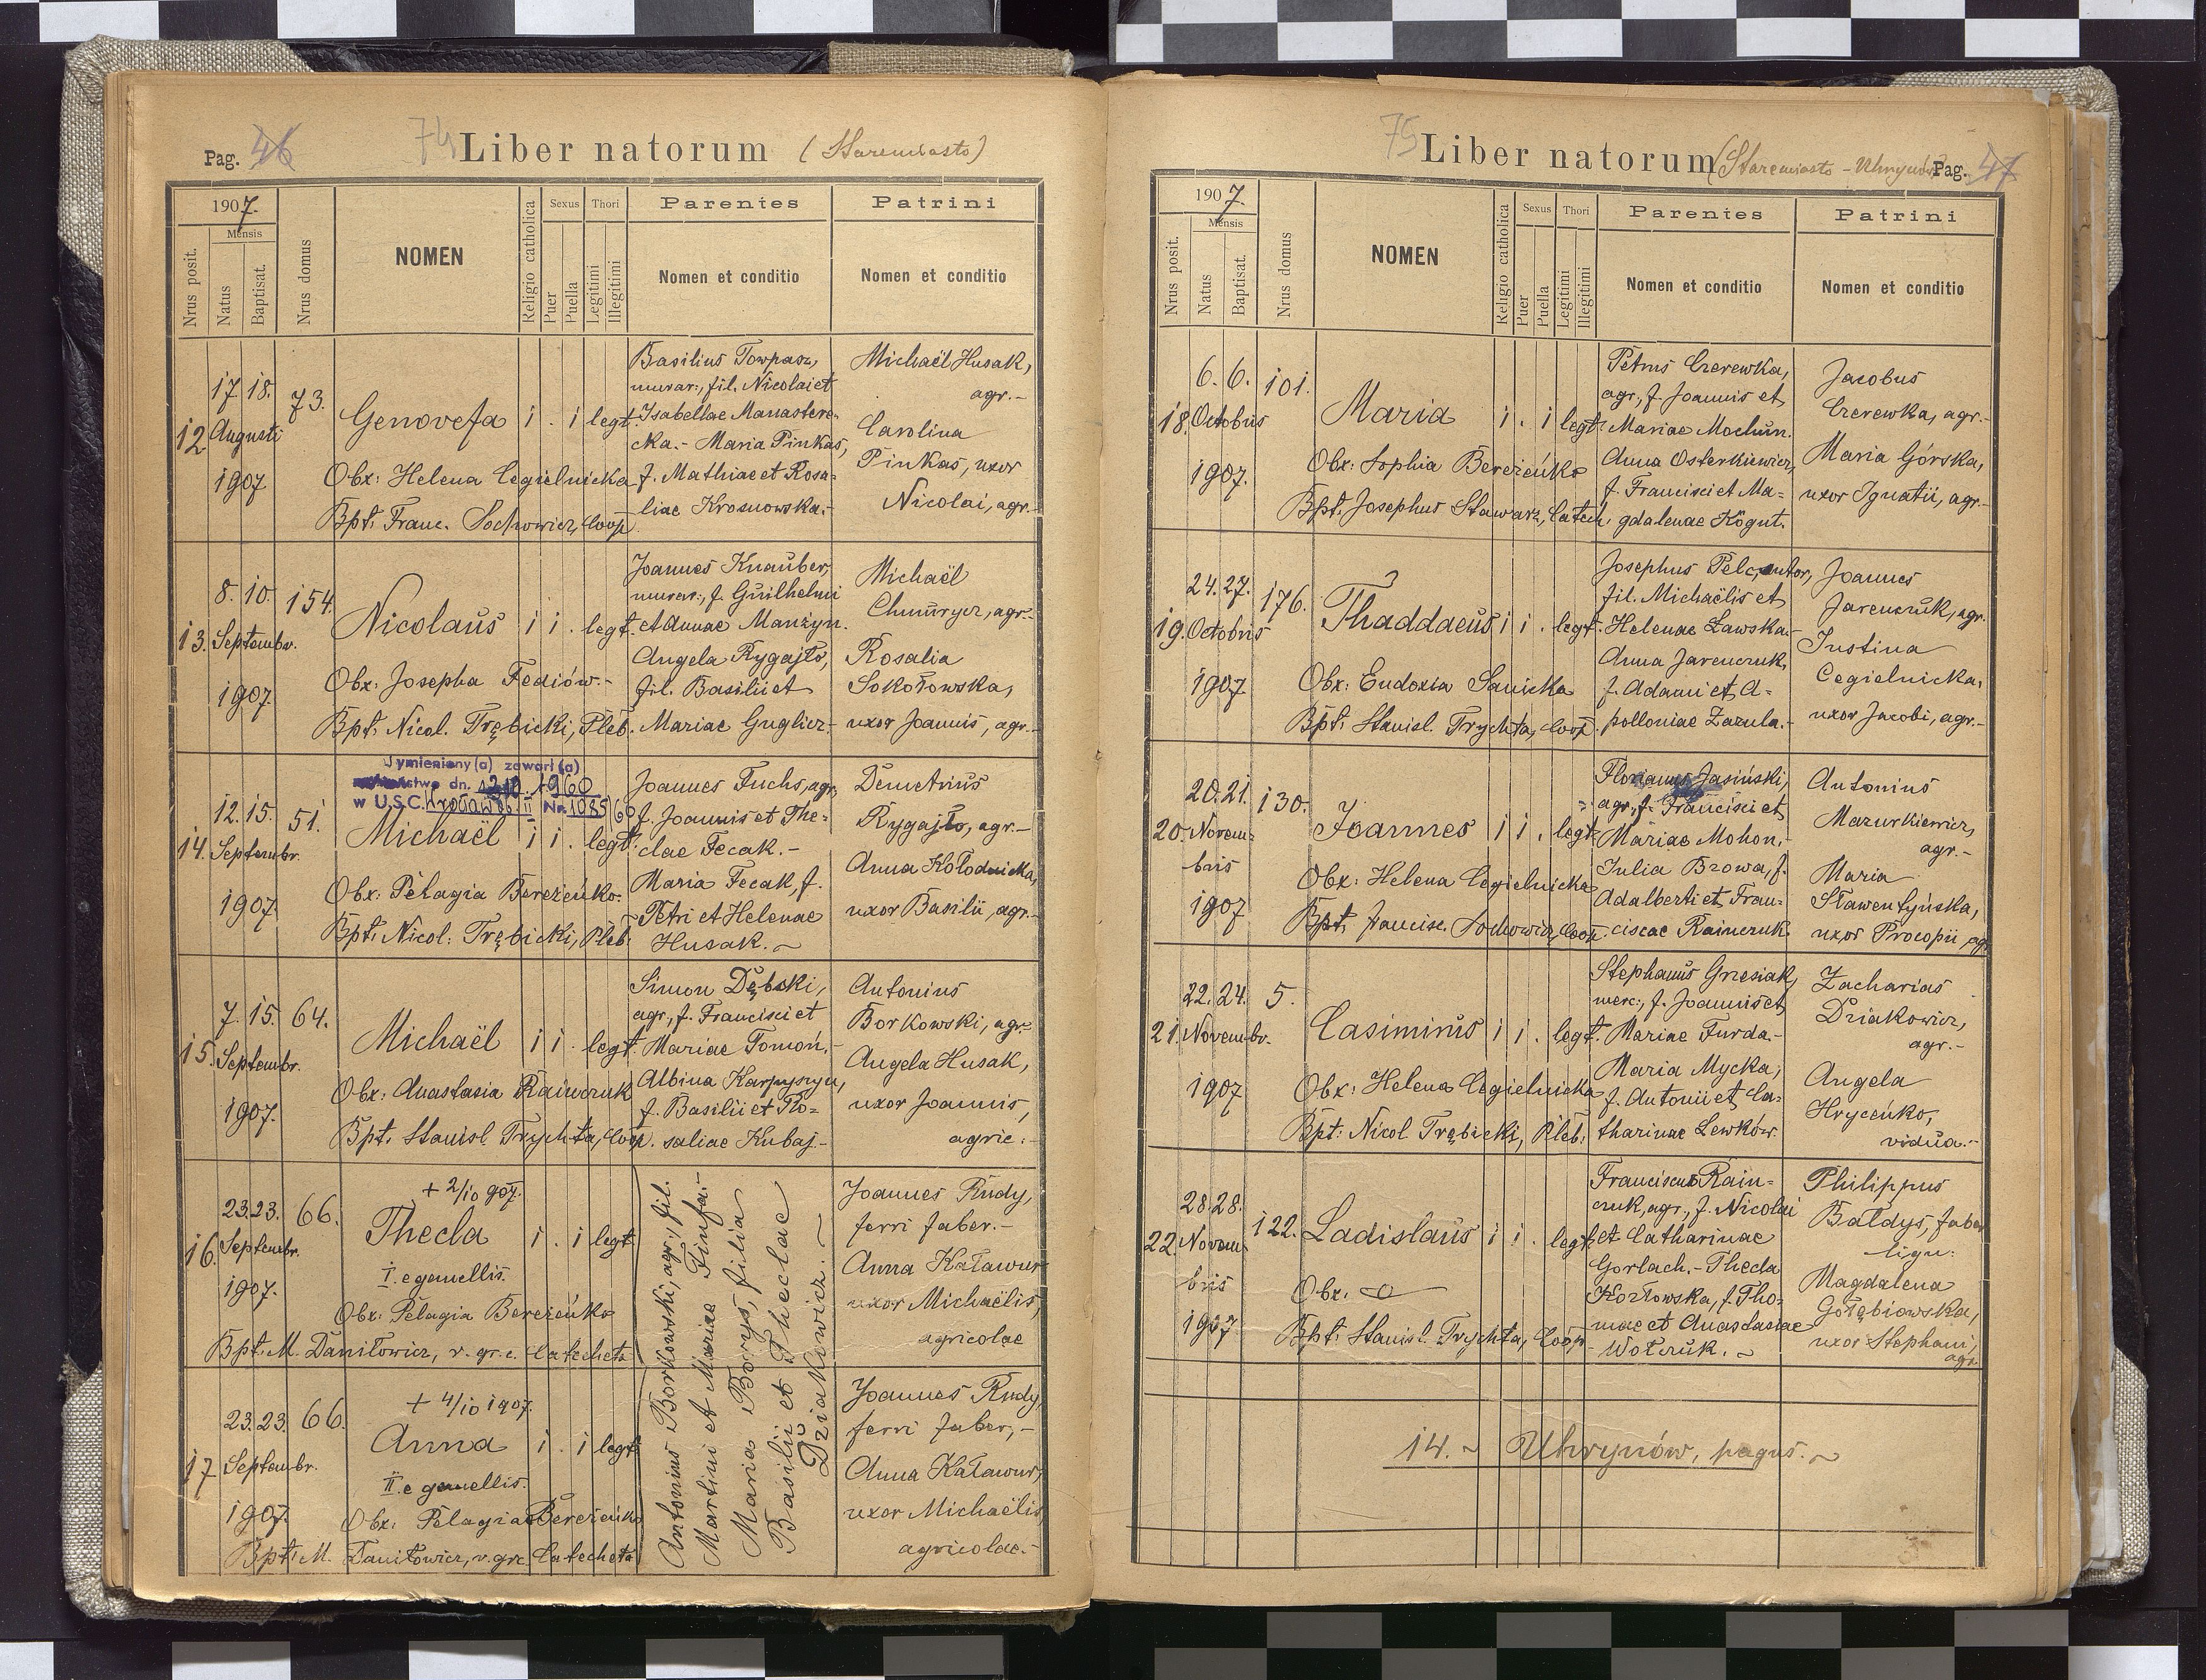 Pag. 46 74 Liber natorum (Staremiasto)
1907. Mensis
Nrus posit. Natus Baptisat. Nrus domus NOMEN Religio catholica Sexus Puer Puella Thori Legitimi Illegitimi Parentes Nomen et conditio Patrini Nomen et conditio
12. 17. 18. Augusti 1907 73. Genovefa i . i legt.
Obx: Helena Cegielnicka
Bpt. Franc. Sochowicz, Coop.
Basilius Towpasz,
murar:, fil. Nicolai et
Isabellae Manastere-
cka.- Maria Pinkas,
f. Mathiae et Rosa-
liae Krosnowska.-
Michaël Husak,
agr.-
Carolina
Pinkas, uxor
Nicolai, agr.-
13. 8. 10. Septembr. 1907 154. Nicolaus i i . legt.
Obx: Josepha Fediów.-
Bpt. Nicol. Trębicki, Pleb.
Joannes Knauber,
murar:, f. Guilhelmi
et Annae Manżyn.
Angela Rygajło,
fil. Basilii et
Mariae Guglicz.-
Michaël
Chmurycz, agr.-
Rosalia
Sokołowska,
uxor Joannis, agr.-
Wymieniony(a) zawarł(a)
dn. 1960
w U.S.C. Wrocław II Nr 1085/60
14. 12. 15. Septembr. 1907 51. Michaël i i . legt.
Obx: Pelagia Bereżeńko.
Bpt. Nicol: Trębicki, Pleb.
Joannes Fuchs, agr,
f. Joannis et The-
clae Fecak.-
Maria Fecak, f.
Petri et Helenae
Husak.
Demetrius
Rygajło, agr.-
Anna Kołodnicka,
uxor Basilii, agr.-
15. 7. 15. Septembr. 1907. 64. Michaël i i . legt.
Obx: Anastasia Rainczuk
Bpt. Stanisl. Trychta, Coop.
Simon Dębski,
agr., f. Francisci et
Mariae Tomoń.-
Albina Karpyszyn,
f. Basilii et Ro-
saliae Kubaj.-
Antonius
Borkowski, agr.-
Angela Husak,
uxor Joannis,
agric.-
+ 2/10 907.
16. 23. 23. Septembr. 1907. 66. Thecla i . i legt.
I. e gemellis.
Obx: Pelagia Bereżeńko
Bpt. M. Daniłowicz, r. gr. c. Catecheta
Joannes Rudy,
ferri faber.-
Anna Kaławur
uxor Michaëlis,
agricolae
Antonius Borkowski, agr., fil.
Martini et Mariae Finfa.-
Maria Borys, filia
Basilii et Theclae
Dziakowicz.
+ 4/10 1907.
17 23. 23. Septembr. 1907. 66. Anna i . i legt.
II. e gemellis.
Obx: Pelagia Bereżeńko
Bpt. M. Daniłowicz, r. gr c. Catecheta
Joannes Rudy,
ferri faber,-
Anna Kaławur,
uxor Michaëlis,
agricolae.-
75 Liber natorum (Staremiasto - Uhrynów) Pag. 47
1907. Mensis
Nrus posit. Natus Baptisat. Nrus domus NOMEN Religio catholica Sexus Puer Puella Thori Legitimi Illegitimi Parentes Nomen et conditio Patrini Nomen et conditio
18. 6. 6. Octobris 1907. 101. Maria i . i legt.
Obx: Sophia Bereżeńko
Bpt. Josephus Stawarz, Catech.
Petrus Czerewka,
agr., f. Joannis et
Mariae Mochun.
Anna Osterkiewicz,
f. Francisci et Ma-
gdalenae Kogut.
Jacobus
Czerewka, agr.-
Maria Górska,
uxor Ignatii, agr.-
19. 24. 27. Octobris 1907 176. Thaddaeus i i . legt.
Obx: Eudoxia Sawicka
Bpt. Stanisl. Trychta, Coop.
Josephus Pelc, sutor,
fil. Michaëlis et
Helenae Ławska.-
Anna Jarenczuk,
f. Adami et A-
polloniae Zazula.-
Joannes
Jarenczuk, agr.
Justina
Cegielnicka,
uxor Jacobi, agr.-
20. 20. 21. Novembris 1907 130. Joannes i i . legt.
Obx: Helena Cegielnicka
Bpt. Francisc. Sochowicz, Coop.
Florianus Jasiński,
agr., f. Francisci et
Mariae Mohon.-
Julia Browa, f.
Adalberti et Fran-
ciscae Rainczuk.
Antonius
Mazurkiewicz,
agr.-
Maria
Sławentyńska,
uxor Procopii, agr.
21. 22. 24. Novembr. 1907 5. Casimirus i i . legt.
Obx: Helena Cegielnicka
Bpt: Nicol Trębicki, Pleb.
Stephanus Grzesiak,
merc:, f. Joannis et
Mariae Furda.-
Maria Mycka,
f. Antonii et Ca-
tharinae Lewków.
Zacharias
Dziakowicz,
agr.-
Angela
Hryceńko,
vidua.-
22. 28. 28. Novembris 1907 122. Ladislaus i i . legt.
Obx.
Bpt. Stanisl. Trychta, Coop.
Franciscus Rain-
czuk, agr., f. Nicolai
et Catharinae
Gorlach.- Thecla
Kozłowska, f. Tho-
mae et Anastasiae
Wołczuk.
Philippus
Bałdys, faber
lign:
Magdalena
Gołębiowska,
uxor Stephani,
agr.
14. Uhrynów, pagus.